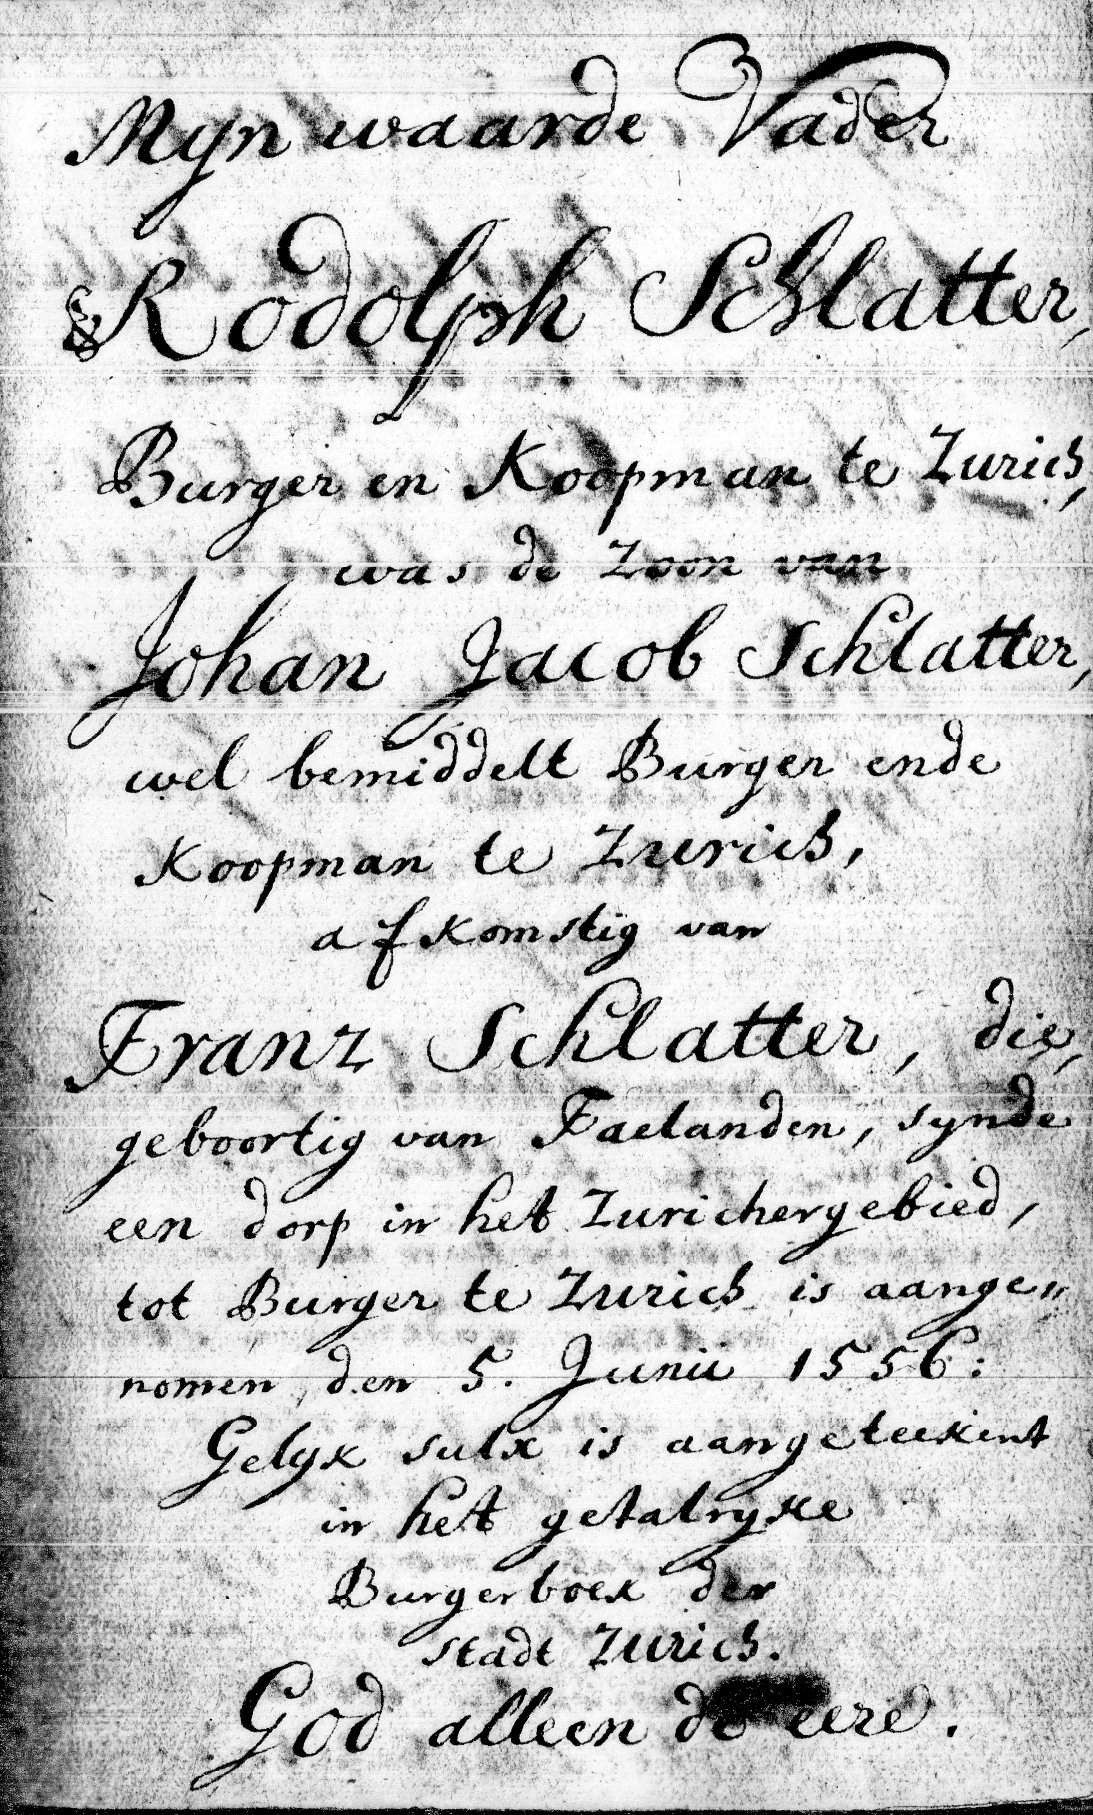 Mijn waarde Vader
Rodolph Schlatter,
Burger en Koopman te Zurich,
was de Zoon van
Johan Jacob Schlatter,
wel bemiddelt Burger ende
Koopman te Zurich,
afkomstig van
Franz Schlatter, die,
geboortig van Faelanden, synde
een dorp in het Zurichergebied,
tot Burger te Zurich is aange„
nomen den 5. Junii 1556:
Gelyk sulx is aangeteekent
in het getalryke
Burgerboek der
stadt Zurich.
God alleen de eere.